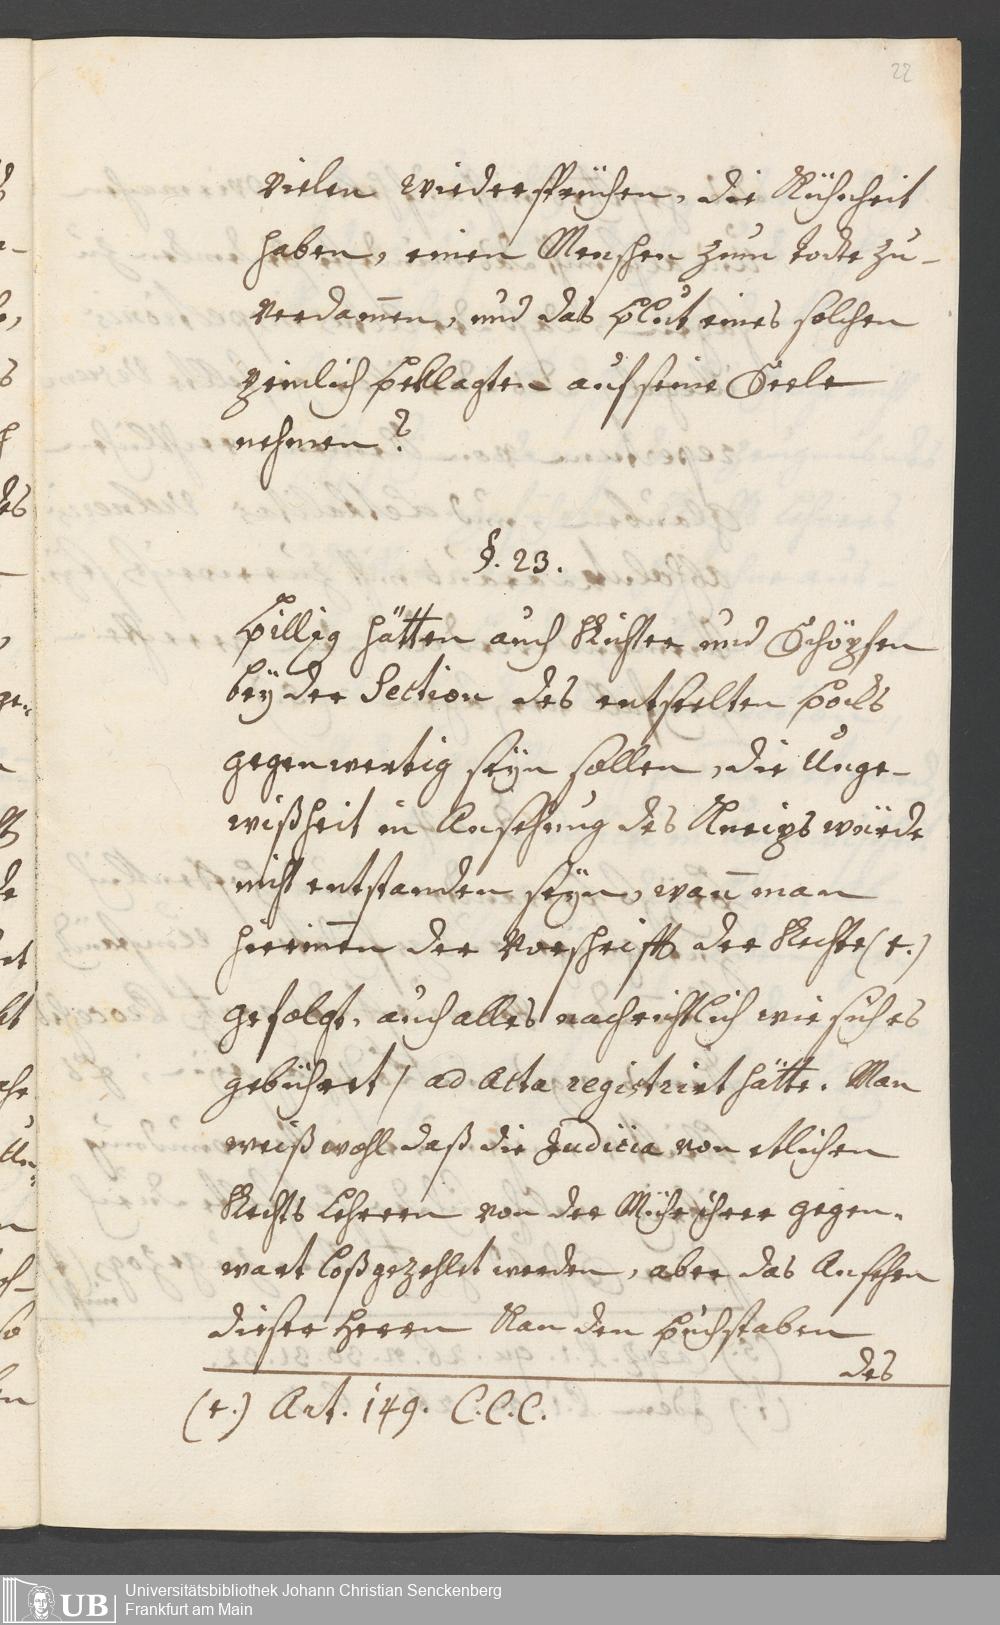 22
vielen wiedersprüchen, die Kühnheit
haben, einen Menschen zum todte zu-
verdam̅en, und das Blut eines solchen
peinlich Beklagten auf seine Seele
nehmen?
§. 23.
Billig hätten auch Richter und Schöpfen
bey der Section des entseelten Bocks
gegenwertig seÿn sollen, die Unge-
wißheit in Ansehung des Kneips würde
nicht entstanden seÿn, wan̅ man
hierin̅en der Vorschrifft der Rechte (t.)
gefolgt, auch alles nachrichtlich wie sich es
gebühret / ad Acta registrirt hätte. Man
weiß wohl daß die Judicia von etlichen
Rechts Lehrern von der Mühe ihrer gegen-
wart loßgezehlet werden, aber das Ansehen
dieser Herrn kan den Buchstaben
des
(t.) Art. 149. C.C.C.
UB
Universitätsbibliothek Johann Christian Senckenberg
Frankfurt am Main